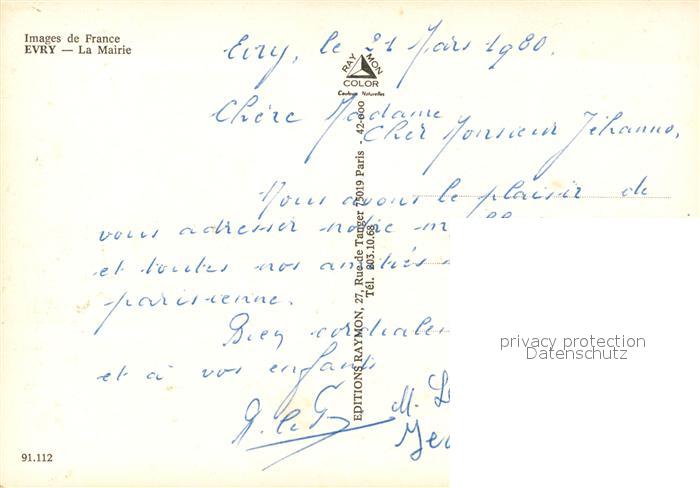 Images de France
EVRY — La Mairie
Evry, le 21 Mars 1980.
RAYMON
COLOR
Couleurs Naturelles
Chère Madame
Cher Monsieur Jéhanno,
Nous avons le plaisir de
vous adresser notre
et toutes nos amitiés
parisienne.
Bien
et à vos enfants
M.
EDITIONS RAYMON, 27, Rue de Tanger 75019 Paris - 42-000
Tél. 203.10.68
privacy protection
Datenschutz
91.112